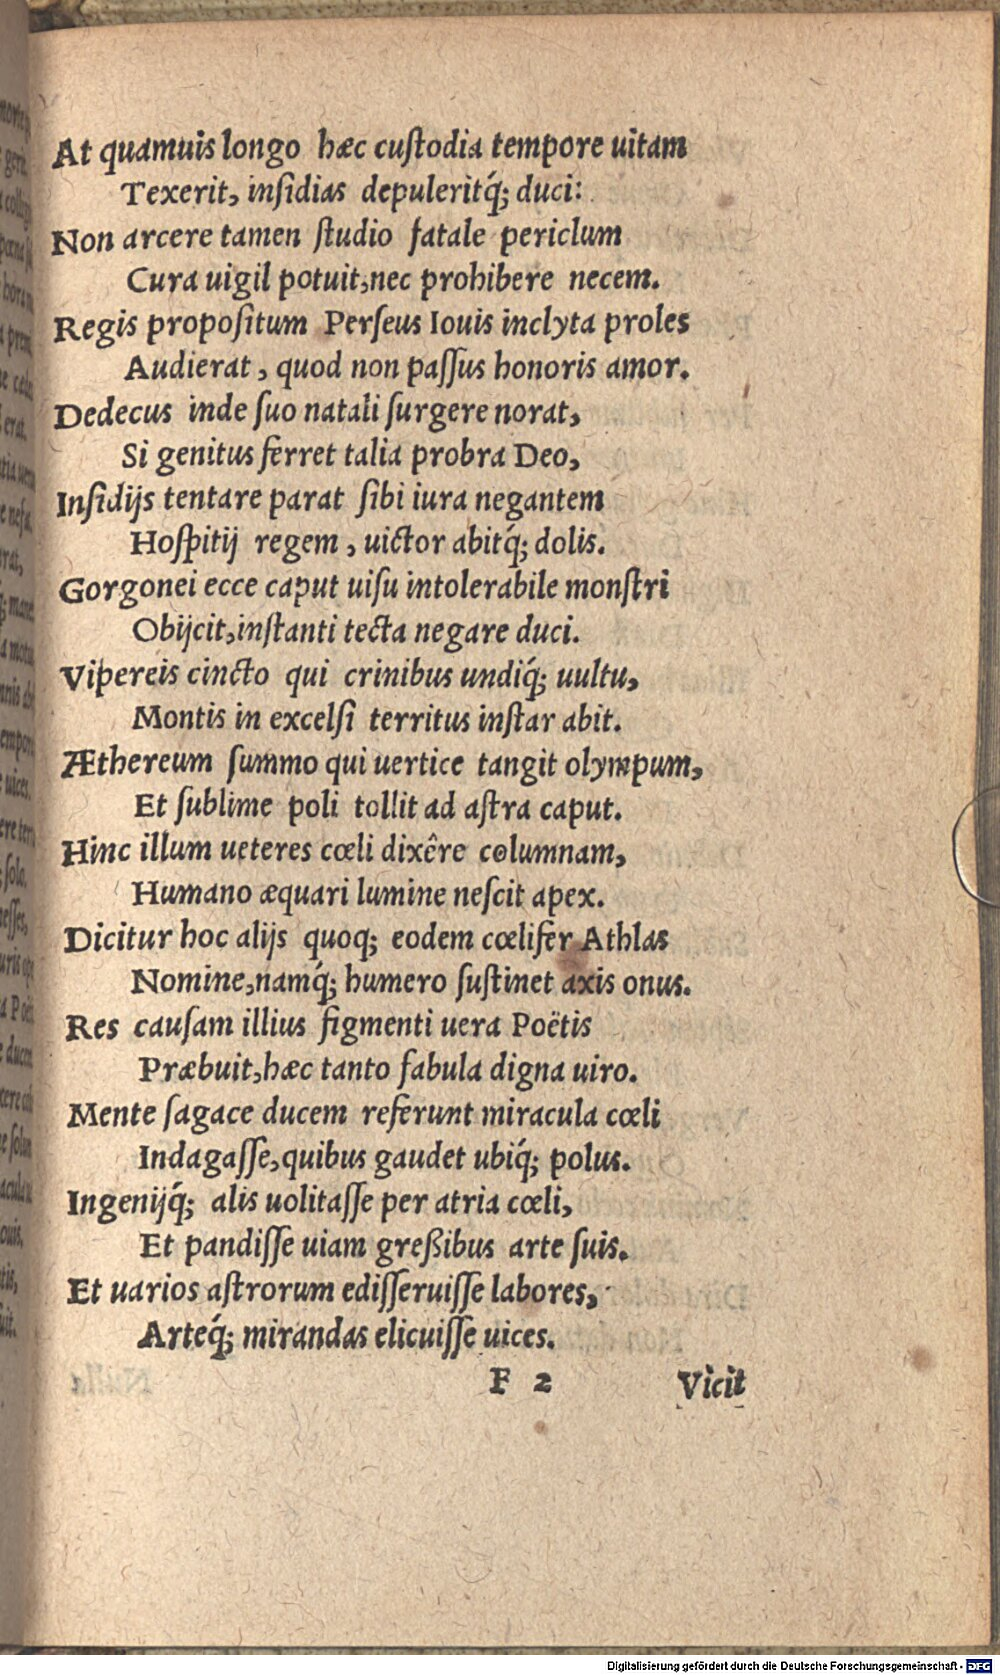 At quamuis longo hæc custodia tempore uitam
Texerit, insidias depuleritq́; duci:
Non arcere tamen studio fatale periclum
Cura uigil potuit, nec prohibere necem.
Regis propositum Perseus Iouis inclyta proles
Audierat, quod non passus honoris amor.
Dedecus inde suo natali surgere norat,
Si genitus ferret talia probra Deo,
Insidijs tentare parat sibi iura negantem
Hospitij regem, uictor abitq́; dolis.
Gorgonei ecce caput uisu intolerabile monstri
Obijcit, instanti tecta negare duci.
Vipereis cincto qui crinibus undiq́; uultu,
Montis in excelsi territus instar abit.
Æthereum summo qui uertice tangit olympum,
Et sublime poli tollit ad astra caput.
Hinc illum ueteres cœli dixêre columnam,
Humano æquari lumine nescit apex.
Dicitur hoc alijs quoq; eodem cœlifer Athlas
Nomine, namq́; humero sustinet axis onus.
Res causam illius figmenti uera Poëtis
Præbuit, hæc tanto fabula digna uiro.
Mente sagace ducem referunt miracula cœli
Indagasse, quibus gaudet ubiq́; polus.
Ingenijq́; alis uolitasse per atria cœli,
Et pandisse uiam greßibus arte suis.
Et uarios astrorum edisseruisse labores,
Arteq́; mirandas elicuisse uices.
F 2 Vicit
Digitalisierung gefördert durch die Deutsche Forschungsgemeinschaft - DFG